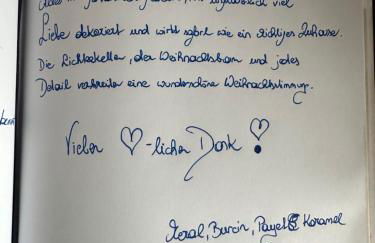 viel
Liebe dekoriert und wirkt sofort wie ein richtiges Zuhause.
Die Lichterketten, der Weihnachtsbaum und jedes
Detail verbreiten eine wunderschöne Weihnachtsstimmung.
Vielen ♡-lichen Dank !
Meral, Burcin, Karamel